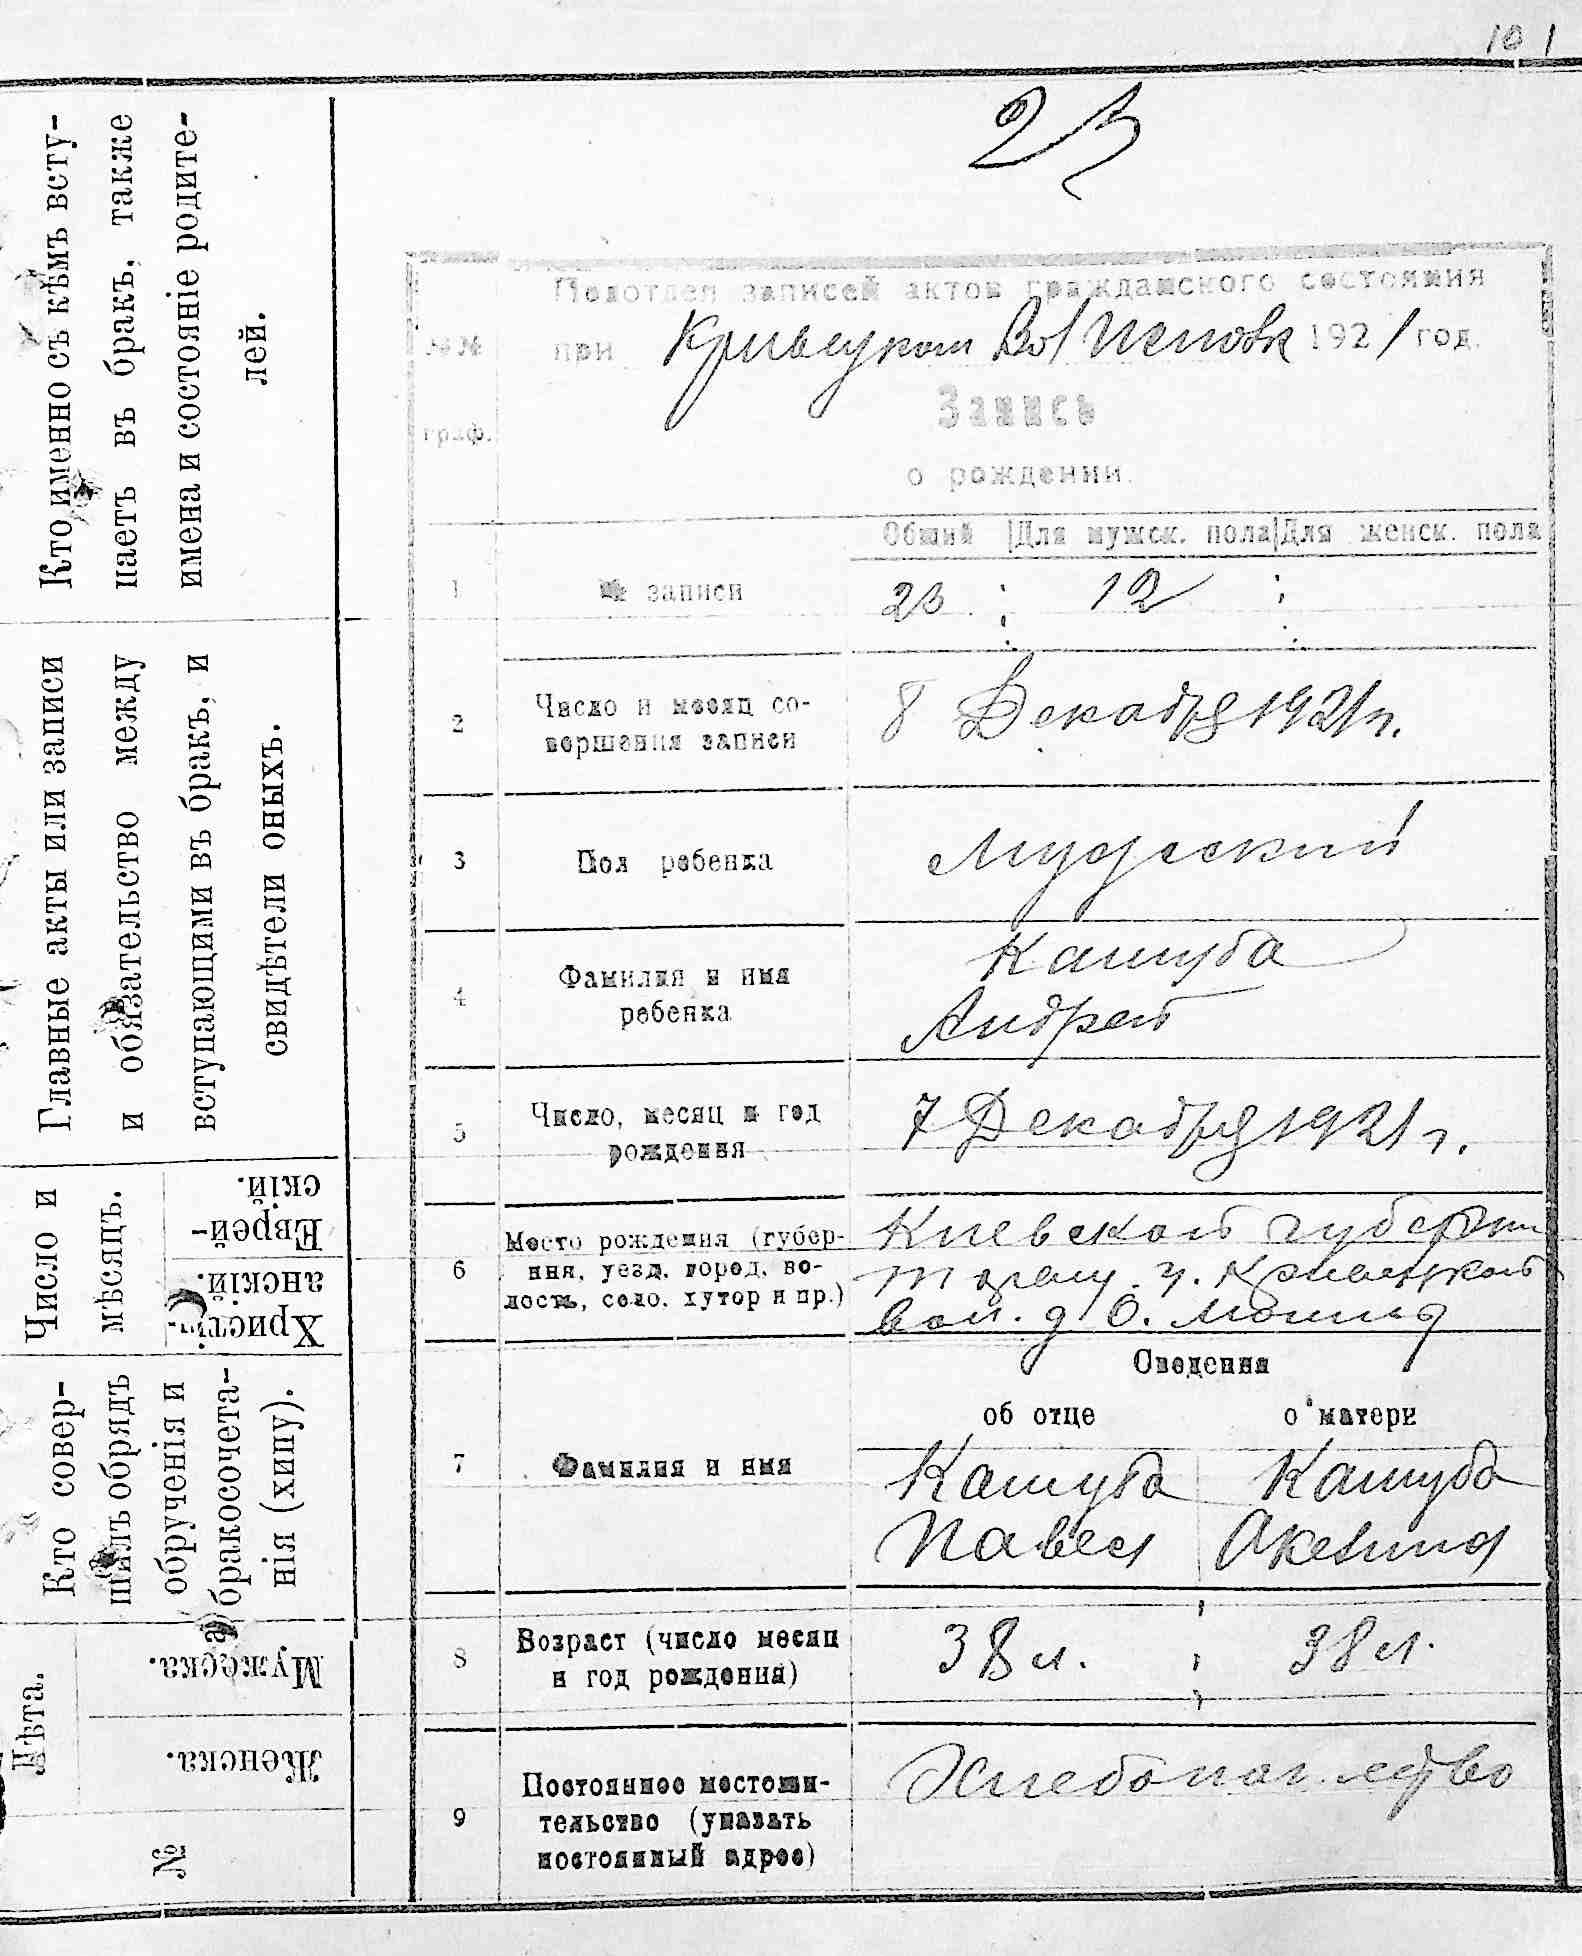 101
23
Кто именно съ кѣмъ всту-
паетъ въ бракъ, также
имена и состояніе родите-
лей.
Главные акты или записи
и обязательство между
вступающими въ бракъ, и
свидѣтели оныхъ.
Число и
мѣсяцъ.
Еврей-
скій.
Христі-
анскій.
Кто совер-
шилъ обрядъ
обрученія и
бракосочета-
нія (хипу).
Лѣта.
Мужеска.
Женска.
№
№№
граф.
Подотдел записей актов гражданского состояния
при Кривецком Вол Исполк 1921 год.
Запись
о рождении.
Общий Для мужск. пола Для женск. пола
1 № записи 23 12
2 Число и месяц со-
вершения записи
8 Декабря 1921 г.
3 Пол ребенка Мужеский
4 Фамилия и имя
ребенка
Кашуба
Андрей
5 Число, месяц и год
рождения
7 Декабря 1921 г.
6 Место рождения (губер-
ния, уезд, город, во-
лость, село, хутор и пр.)
Киевской губерни
у. Кривецкой
вол. д
Сведения
об отце о матери
7 Фамилия и имя
Кашуба Кашуба
Павел Акелина
8 Возраст (число месяц
и год рождения)
38 л. 38 л.
9 Постоянное местожи-
тельство (указать
постоянный адрес)